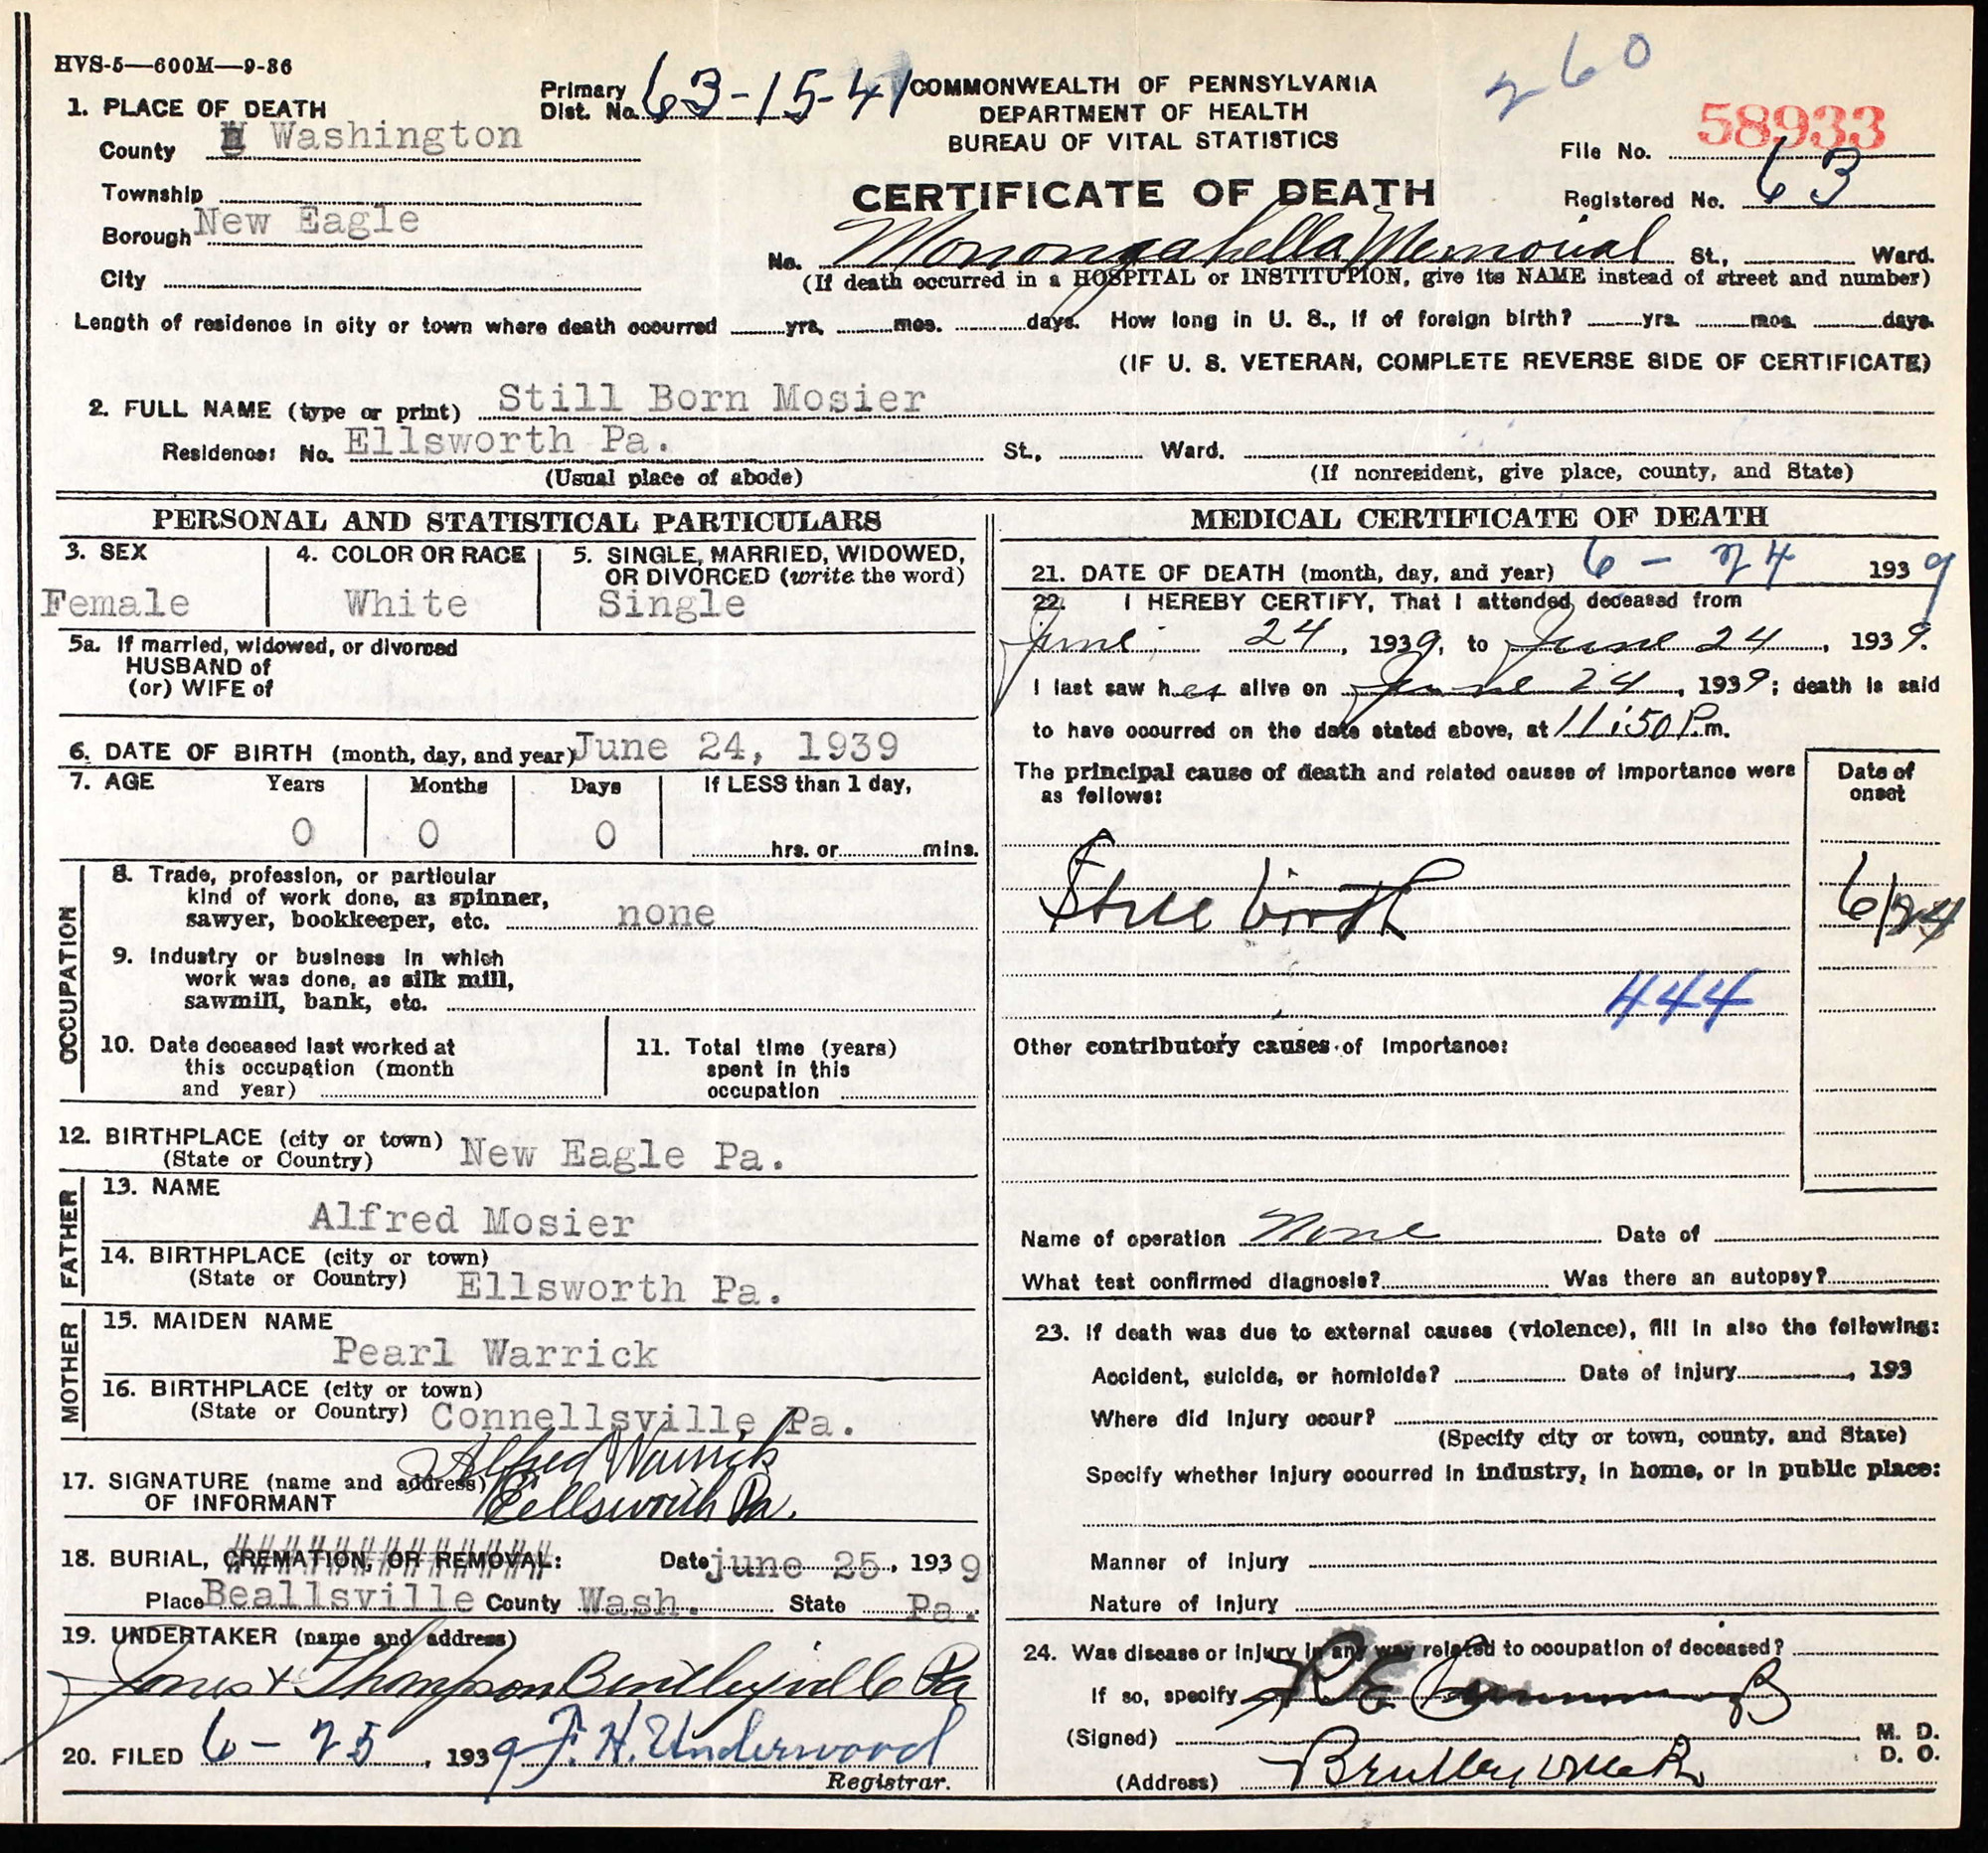 HVS-5—600M—9-36
260
1. PLACE OF DEATH
Primary Dist. No. 63-15-41
COMMONWEALTH OF PENNSYLVANIA
DEPARTMENT OF HEALTH
BUREAU OF VITAL STATISTICS
58933
County Washington
File No.
Township
CERTIFICATE OF DEATH
Registered No. 63
Borough New Eagle
No. Monongahella Memorial St., Ward.
City
(If death occurred in a HOSPITAL or INSTITUTION, give its NAME instead of street and number)
Length of residence in city or town where death occurred yrs. mos. days. How long in U. S., if of foreign birth? yrs. mos. days.
(IF U. S. VETERAN, COMPLETE REVERSE SIDE OF CERTIFICATE)
2. FULL NAME (type or print) Still Born Mosier
Residence: No. Ellsworth Pa. St., Ward.
(Usual place of abode) (If nonresident, give place, county, and State)
PERSONAL AND STATISTICAL PARTICULARS
3. SEX
Female
4. COLOR OR RACE
White
5. SINGLE, MARRIED, WIDOWED,
OR DIVORCED (write the word)
Single
5a. If married, widowed, or divorced
HUSBAND of
(or) WIFE of
6. DATE OF BIRTH (month, day, and year) June 24, 1939
7. AGE Years Months Days If LESS than 1 day,
0 0 0 hrs. or mins.
OCCUPATION
8. Trade, profession, or particular
kind of work done, as spinner,
sawyer, bookkeeper, etc. none
9. Industry or business in which
work was done, as silk mill,
sawmill, bank, etc.
10. Date deceased last worked at
this occupation (month
and year)
11. Total time (years)
spent in this
occupation
12. BIRTHPLACE (city or town) New Eagle Pa.
(State or Country)
FATHER
13. NAME
Alfred Mosier
14. BIRTHPLACE (city or town)
(State or Country) Ellsworth Pa.
MOTHER
15. MAIDEN NAME
Pearl Warrick
16. BIRTHPLACE (city or town)
(State or Country) Connellsville, Pa.
Alfred Warrick
17. SIGNATURE (name and address)
OF INFORMANT Ellsworth Pa.
18. BURIAL, CREMATION, OR REMOVAL: Date june 25, 1939
Place Beallsville County Wash. State Pa.
19. UNDERTAKER (name and address)
Jones & Thompson Bentleyville Pa
20. FILED 6-25, 1939 F. H. Underwood
Registrar.
MEDICAL CERTIFICATE OF DEATH
21. DATE OF DEATH (month, day, and year) 6-24 1939
22. I HEREBY CERTIFY, That I attended deceased from
June 24, 1939, to June 24, 1939.
I last saw her alive on June 24, 1939; death is said
to have occurred on the date stated above, at 11:50 P.m.
The principal cause of death and related causes of importance were
as follows:
Date of
onset
Still birth 6/24
444
Other contributory causes of importance:
Name of operation None Date of
What test confirmed diagnosis? Was there an autopsy?
23. If death was due to external causes (violence), fill in also the following:
Accident, suicide, or homicide? Date of injury , 193
Where did injury occur?
(Specify city or town, county, and State)
Specify whether injury occurred in industry, in home, or in public place:
Manner of injury
Nature of injury
24. Was disease or injury in any way related to occupation of deceased?
If so, specify
(Signed) M. D.
D. O.
(Address)